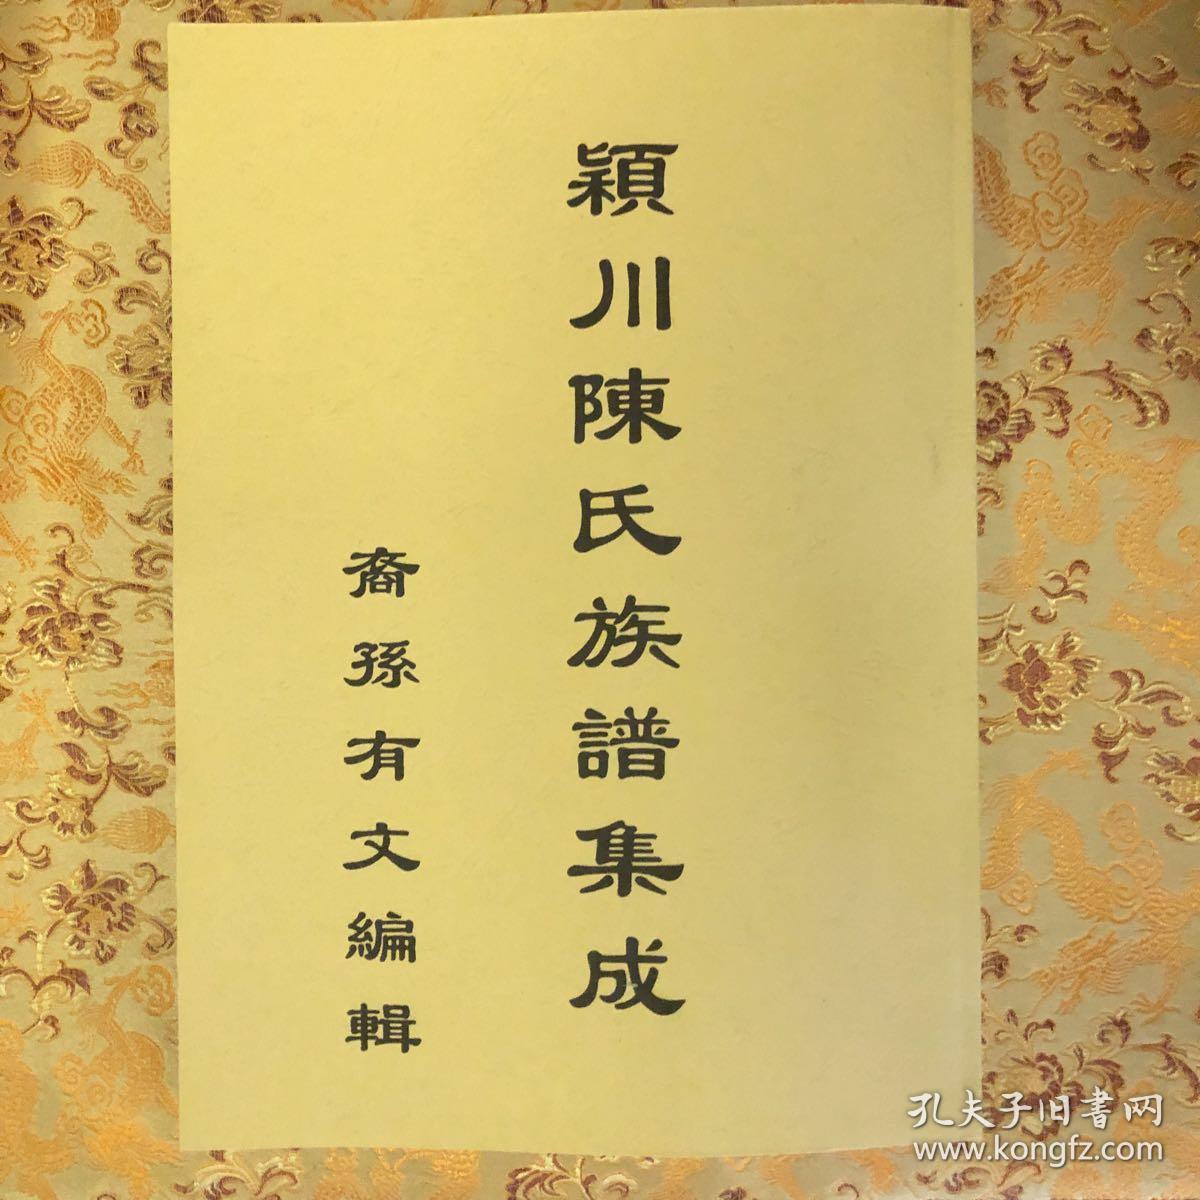 穎川陳氏族譜集成
裔孫有文編輯
孔夫子旧書网
www.kongfz.com